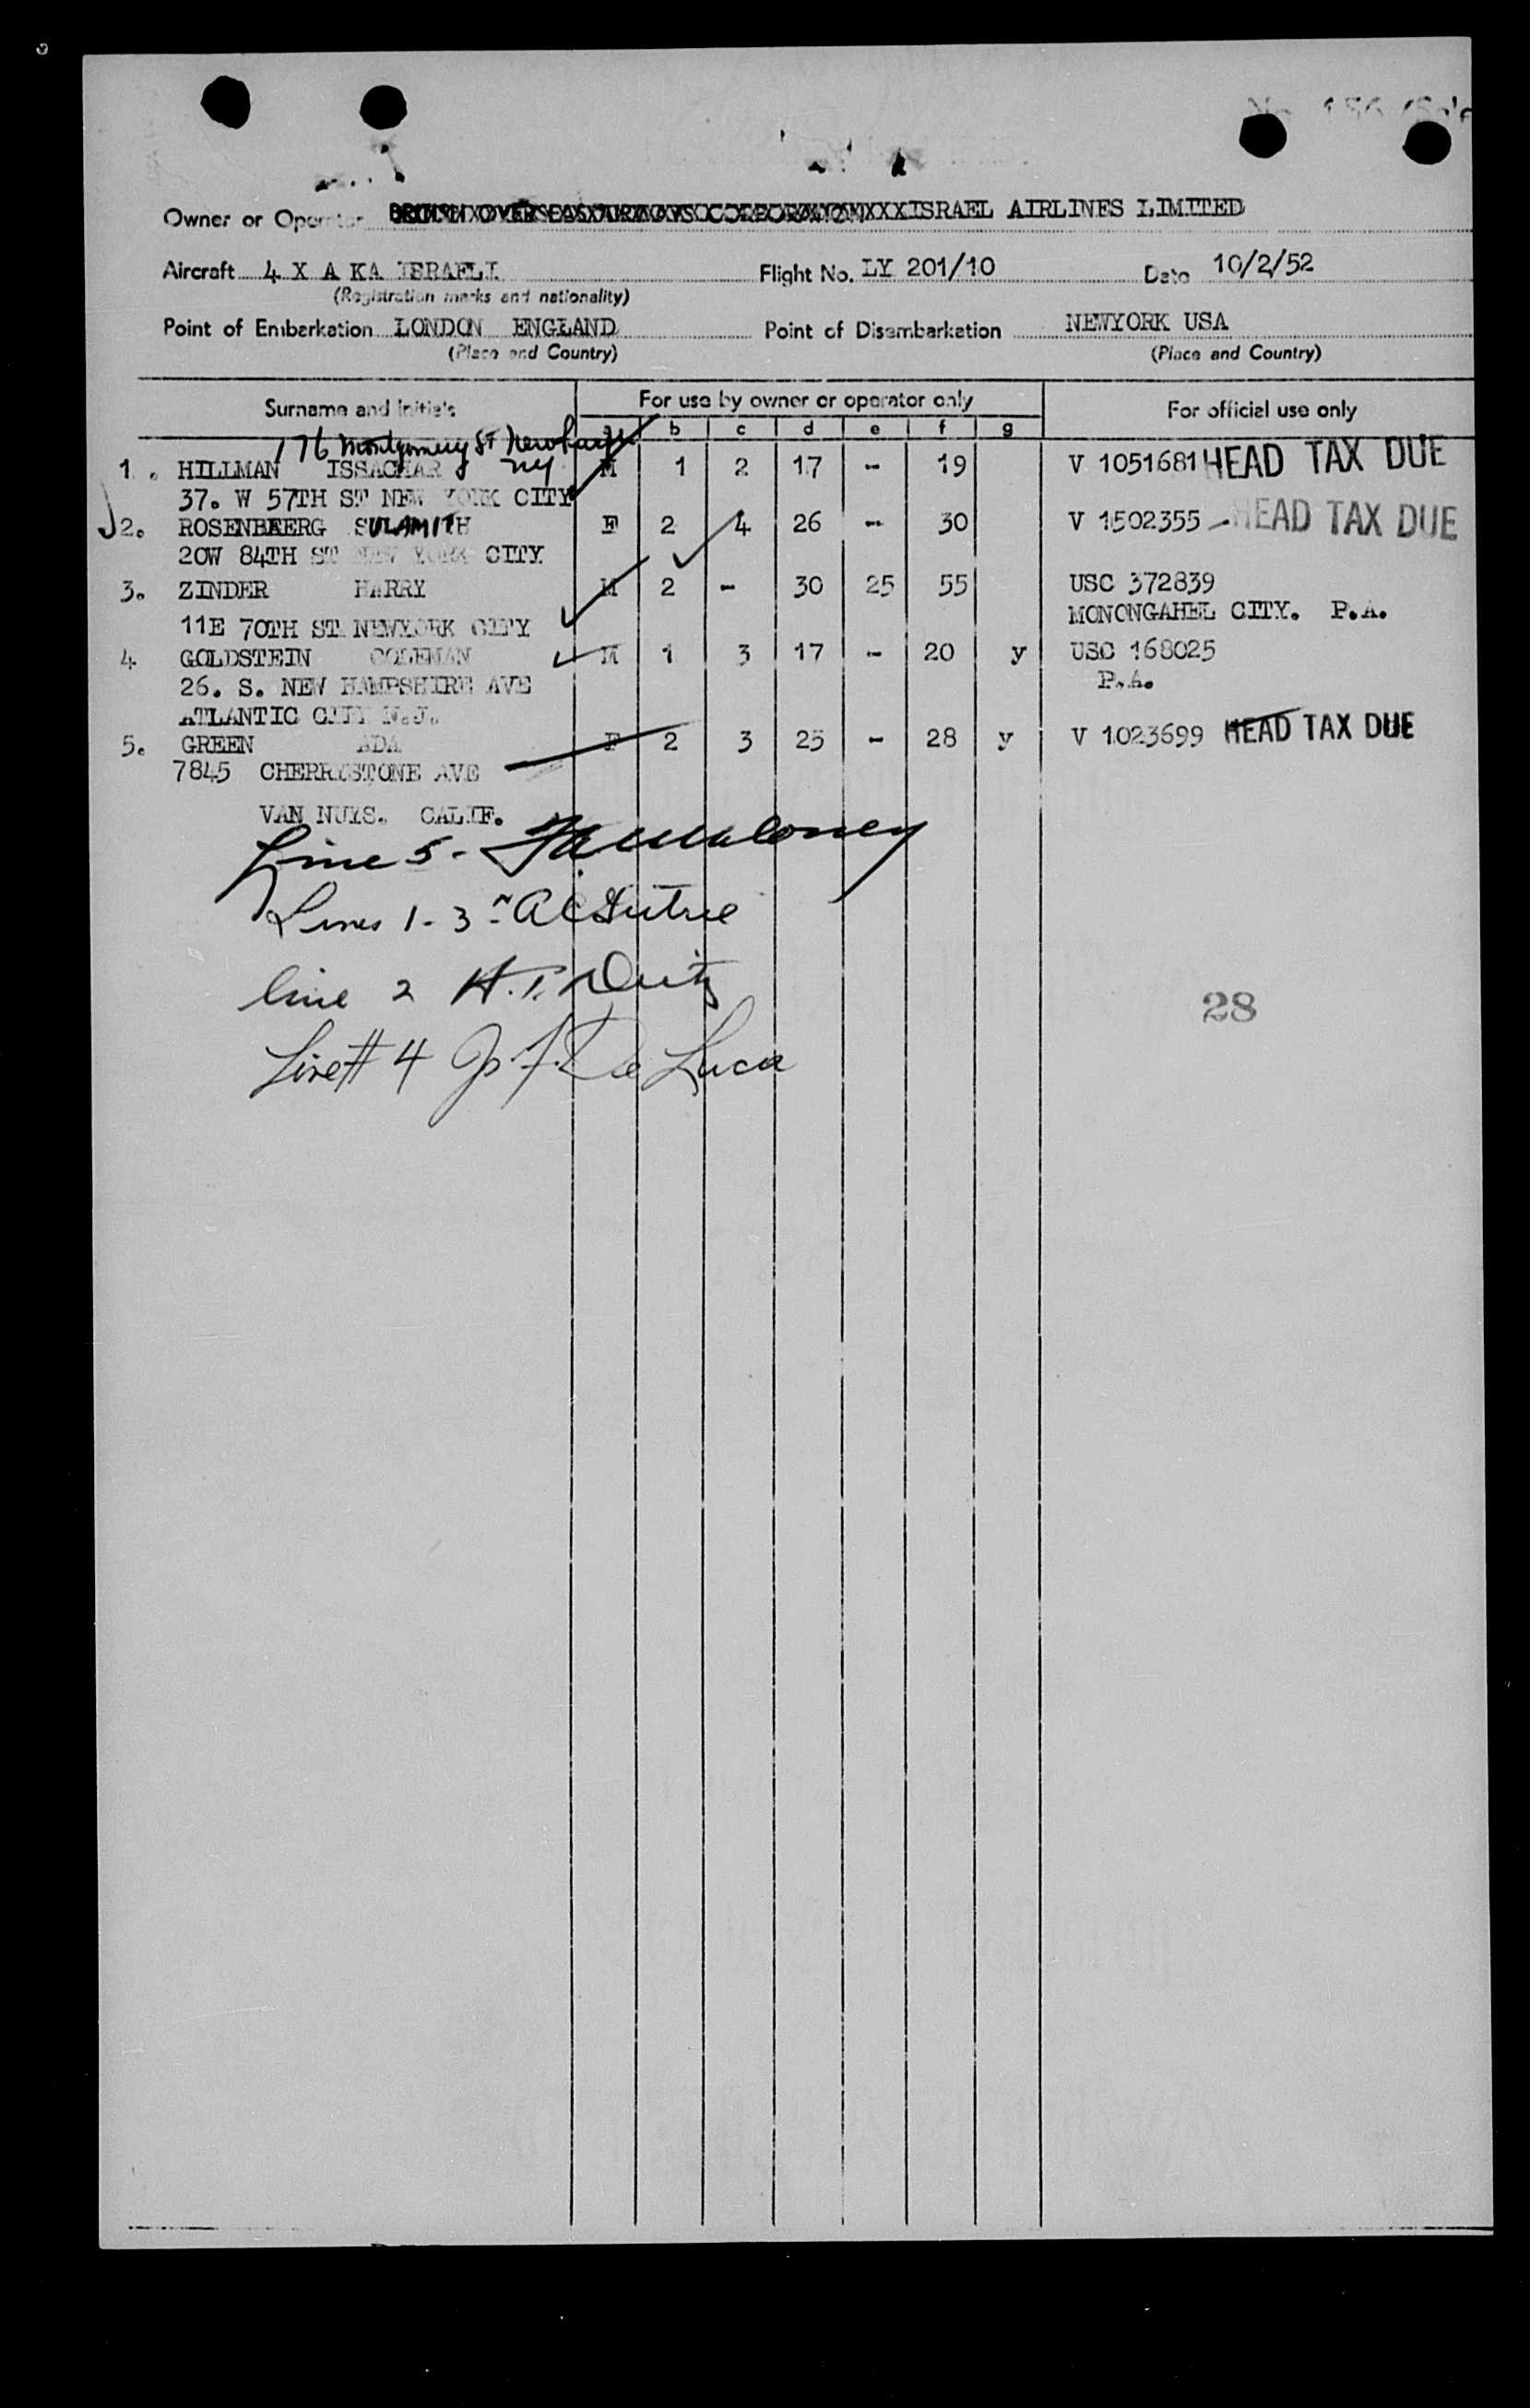 Owner or Operator BRITISH OVERSEAS AIRWAYS CORPORATION XXX ISRAEL AIRLINES LIMITED
Aircraft 4 X A KA ISRAELI Flight No. LY 201/10 Date 10/2/52
(Registration marks and nationality)
Point of Embarkation LONDON ENGLAND Point of Disembarkation NEWYORK USA
(Place and Country) (Place and Country)
Surname and initials For use by owner or operator only For official use only
b c d e f g
176 Montgomery St Newburgh
NY
1. HILLMAN ISSACHAR M 1 2 17 - 19 V 1051681 HEAD TAX DUE
37. W 57TH ST NEW YORK CITY
2. ROSENBERG SULAMITH F 2 4 26 - 30 V 1502355 - HEAD TAX DUE
20W 84TH ST NEW YORK CITY
3. ZINDER HARRY M 2 - 30 25 55 USC 372839
11E 70TH ST NEWYORK CITY MONONGAHEL CITY. P.A.
4 GOLDSTEIN COLEMAN M 1 3 17 - 20 y USC 168025
26. S. NEW HAMPSHIRE AVE P.A.
ATLANTIC CITY N.J.
5. GREEN ADA F 2 3 25 - 28 y V 1023699 HEAD TAX DUE
7845 CHERRYSTONE AVE
VAN NUYS. CALIF.
Line 5 - Maloney
Lines 1-3
line 2 H.
Line # 4 J. F. De Luca
28